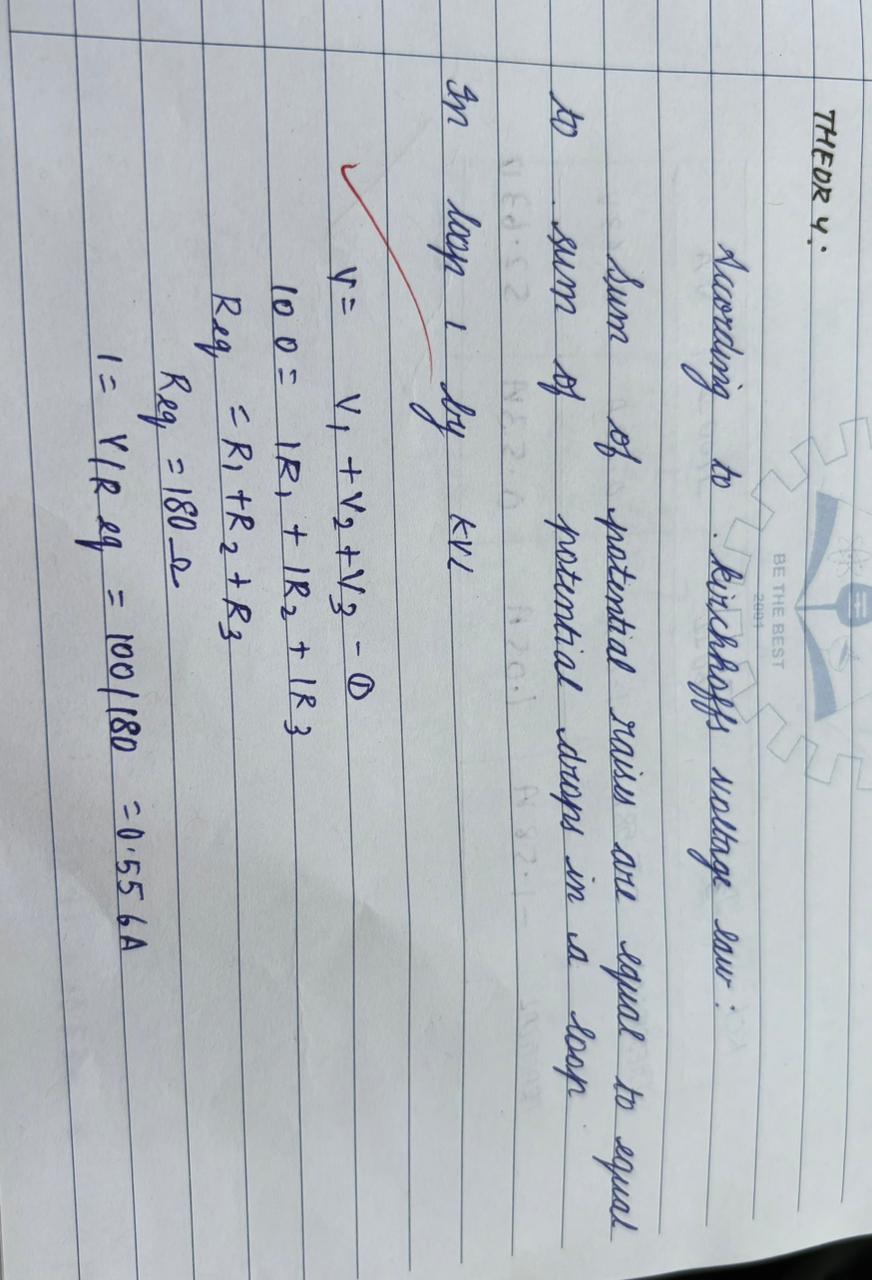 THEORY:
According to kirchhoffs voltage law:
Sum of potential raises are equal to equal
to sum of potential drops in a loop
In loop 1 by KVL
V = V₁ + V₂ + V₃ - ①
100 = IR₁ + IR₂ + IR₃
Req = R₁ + R₂ + R₃
Req = 180 Ω
I = V/Req = 100/180 = 0.556A
BE THE BEST
2001